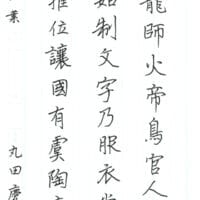 龍師火帝鳥官人
始制文字乃服衣
推位讓國有虞陶
葉 丸田